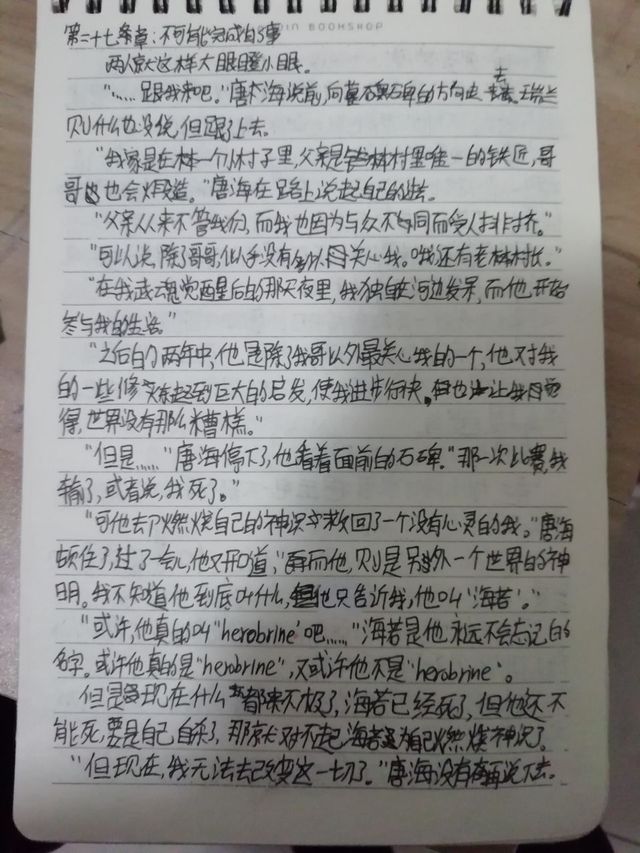 BOOKSHOP
第二十七章:不可能完成的事
两人就这样大眼瞪小眼。
"……跟我来吧。"唐海说道,向墓石碑的方向走去。
则什么也没说,但跟了上去。
"我家是在林一个小村子里,父亲是村里唯一的铁匠,哥
哥也会锻造。"唐海在路上说起自己的过去。
"父亲从来不管我们,而我也因为与众不同而受人排挤。"
"可以说,除了哥哥,似乎没有人关心我。哦还有老林村长。"
"在我武魂觉醒后的那天夜里,我独自在河边发呆,而他开始
参与我的生活。"
"之后的两年中,他是除了我哥以外最关心我的一个,他对我
的一些修炼起到巨大的启发,使我进步行快,但也让我觉
得,世界没有那么糟糕。"
"但是……"唐海停下了,他看着面前的石碑。"那一次比赛,我
输了,或者说,我死了。"
"可他却燃烧自己的神识救回了一个没有心灵的我。"唐海
顿住了,过了一会儿他又开口道,"而他,则是另外一个世界的神
明。我不知道他到底叫什么,但他只告诉我,他叫'海若'。"
"或许,他真的叫"herobrine'吧……"海若是他永远不会忘记的
名字。或许他真的是"herobrine",又或许他不是"herobrine"。
但是现在什么都来不及了,海若已经死了,但他还不
能死,要是自己自杀了,那就对不起海若为自己燃烧神识了。
"但现在,我无法去改变这一切了。"唐海没有再说下去。